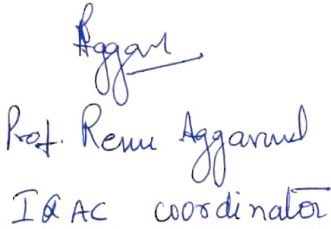 Aggar
Prof. Renu Aggarwal
IQAC coordinator